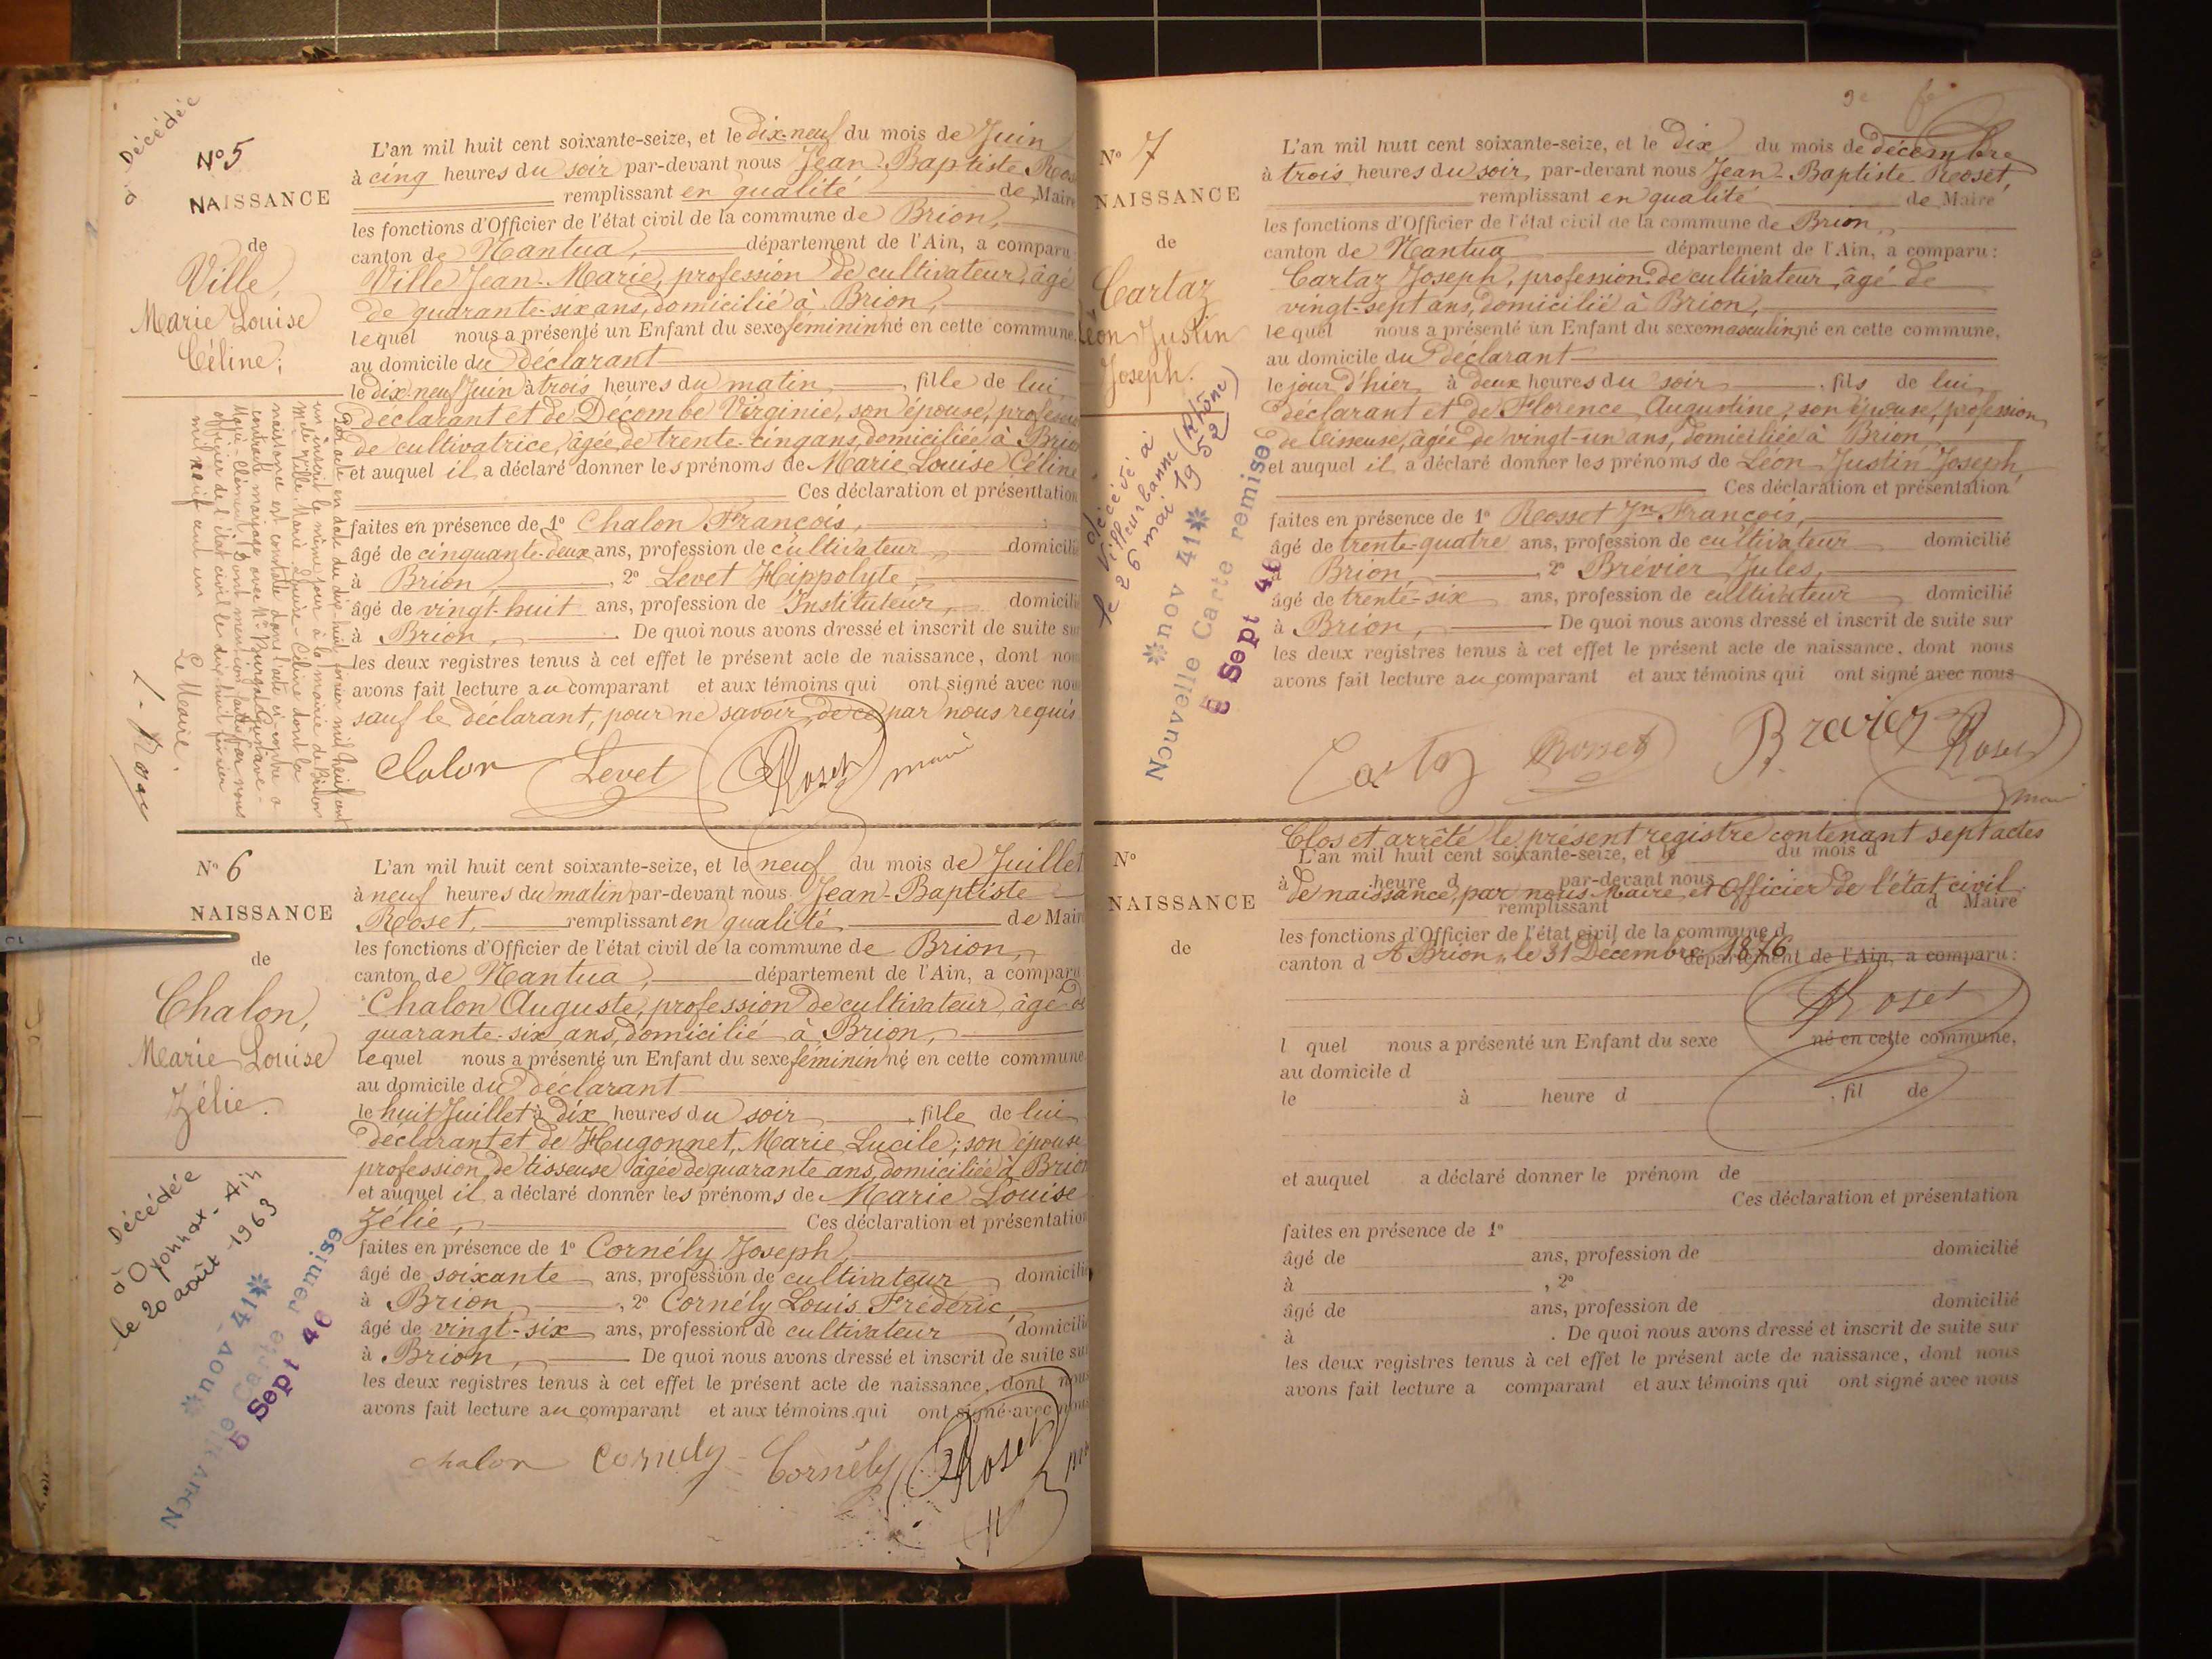 à Décédée
N° 5
NAISSANCE
de
Ville,
Marie Louise
Céline;
L'an mil huit cent soixante-seize, et le dix-neuf du mois de Juin
à cinq heures du soir par-devant nous Jean-Baptiste Ros
remplissant en qualité de Maire
les fonctions d'Officier de l'état civil de la commune de Brion,
canton de Nantua, département de l'Ain, a comparu
Ville Jean-Marie, profession de cultivateur, âgé
de quarante-six ans, domicilié à Brion,
lequel nous a présenté un Enfant du sexe féminin né en cette commune,
au domicile du déclarant
le dix-neuf Juin à trois heures du matin, fille de lui
déclarant et de Décombe Virginie, son épouse, profession
de cultivatrice, âgée de trente-cinq ans, domiciliée à Brion
et auquel il a déclaré donner les prénoms de Marie Louise Céline
Ces déclaration et présentation
faites en présence de 1° Chalon François,
âgé de cinquante-deux ans, profession de cultivateur, domicilié
à Brion, 2° Levet Hippolyte,
âgé de vingt-huit ans, profession de Instituteur, domicilié
à Brion, De quoi nous avons dressé et inscrit de suite sur
les deux registres tenus à cet effet le présent acte de naissance, dont nous
avons fait lecture au comparant et aux témoins qui ont signé avec nous
sauf le déclarant, pour ne savoir, de ce par nous requis
Chalon Levet Roset maire
Par acte en date du dix huit février mil neuf cent
un inscrit le même jour à la mairie de Brion
Melle Ville Marie Louise-Céline dont la
naissance est constatée dans l'acte ci-contre a
contracté mariage avec Mr
Marie-Clément, dont mention faite par nous
officier de l'état civil le dix huit février
mil neuf cent un
Le Maire.
N° 6
NAISSANCE
de
Chalon,
Marie Louise
Zélie.
L'an mil huit cent soixante-seize, et le neuf du mois de Juillet
à neuf heures du matin par-devant nous Jean-Baptiste
Roset, remplissant en qualité de Maire
les fonctions d'Officier de l'état civil de la commune de Brion,
canton de Nantua, département de l'Ain, a comparu
Chalon Auguste, profession de cultivateur, âgé de
quarante-six ans, domicilié à Brion,
lequel nous a présenté un Enfant du sexe féminin né en cette commune
au domicile du déclarant
le huit Juillet à dix heures du soir, fille de lui
déclarant et de Hugonnet, Marie Lucile; son épouse
profession de tisseuse âgée de quarante ans, domiciliée à Brion
et auquel il a déclaré donner les prénoms de Marie Louise
Zélie, Ces déclaration et présentation
faites en présence de 1° Cornély Joseph,
âgé de soixante ans, profession de cultivateur, domicilié
à Brion, 2° Cornély Louis Frédéric,
âgé de vingt-six ans, profession de cultivateur domicilié
à Brion, De quoi nous avons dressé et inscrit de suite sur
les deux registres tenus à cet effet le présent acte de naissance, dont nous
avons fait lecture au comparant et aux témoins qui ont signé avec nous
chalon Cornely Cornély Roset
Décédée
à Oyonnax-Ain
le 20 août-1963
*nov 41*
Nouvelle Carte remise
5 Sept 46
N° 7
NAISSANCE
de
Cartaz
Léon Justin
Joseph.
L'an mil huit cent soixante-seize, et le dix du mois de décembre
à trois heures du soir, par-devant nous Jean-Baptiste Roset,
remplissant en qualité de Maire
les fonctions d'Officier de l'état civil de la commune de Brion,
canton de Nantua département de l'Ain, a comparu :
Cartaz Joseph, profession de cultivateur, âgé de
vingt-sept ans, domicilié à Brion,
lequel nous a présenté un Enfant du sexe masculin, né en cette commune,
au domicile du déclarant
le jour d'hier, à deux heures du soir, fils de lui
déclarant et de Florence Augustine, son épouse, profession
de tisseuse, âgée de vingt-un ans, domiciliée à Brion
et auquel il a déclaré donner les prénoms de Léon Justin Joseph,
Ces déclaration et présentation
faites en présence de 1° Rosset Jn François,
âgé de trente-quatre ans, profession de cultivateur domicilié
à Brion, 2° Brévier Jules,
âgé de trente-six ans, profession de cultivateur domicilié
à Brion, De quoi nous avons dressé et inscrit de suite sur
les deux registres tenus à cet effet le présent acte de naissance, dont nous
avons fait lecture au comparant et aux témoins qui ont signé avec nous
Cartaz Rosset Brevier Roset
maire
décédé à
Villeurbanne (Rhône)
le 26 mai 1952
*nov 41*
Nouvelle Carte remise
5 Sept 46
N°
NAISSANCE
de
Clos et arrêté le présent registre contenant sept actes
L'an mil huit cent soixante-seize, et le du mois d
à heure d par-devant nous
de naissance, par nous Maire et Officier de l'état civil.
remplissant d Maire
les fonctions d'Officier de l'état civil de la commune d
A Brion, le 31 Décembre 1876
canton d département de l'Ain, a comparu :
Roset
l quel nous a présenté un Enfant du sexe né en cette commune,
au domicile d
le à heure d , fil de
et auquel a déclaré donner le prénom de
Ces déclaration et présentation
faites en présence de 1°
âgé de ans, profession de domicilié
à , 2°
âgé de ans, profession de domicilié
à . De quoi nous avons dressé et inscrit de suite sur
les deux registres tenus à cet effet le présent acte de naissance, dont nous
avons fait lecture a comparant et aux témoins qui ont signé avec nous